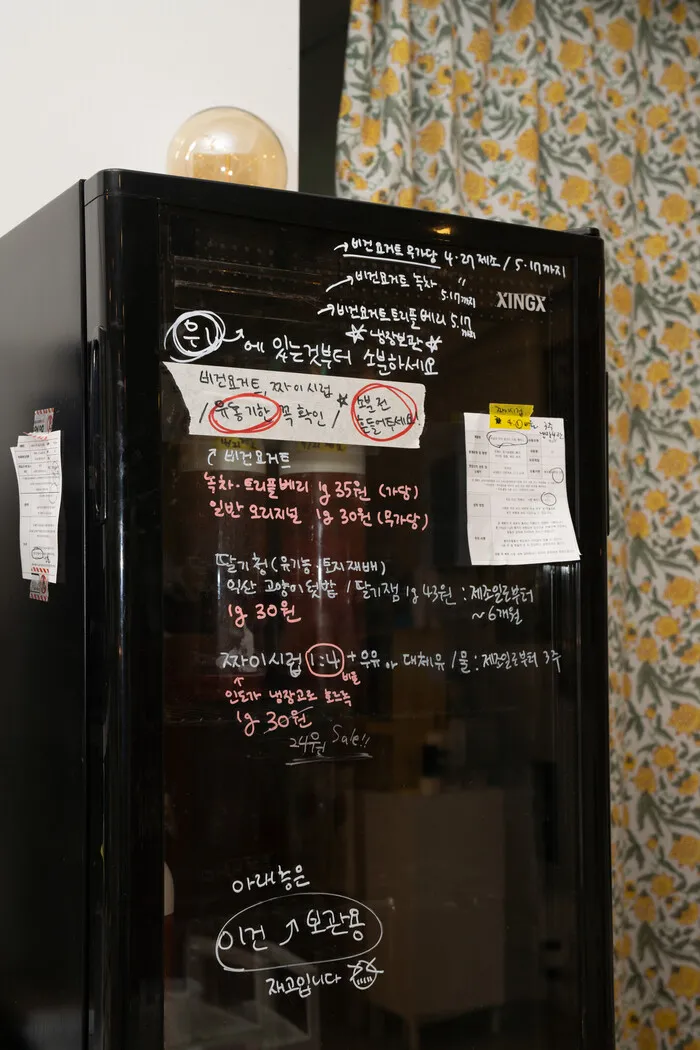 →비건요거트 무가당 4.27 제조 / 5.17까지
→비건요거트 녹차 〃 5.17까지
→비건요거트 트리플베리 5.17까지
XINGX
☆ 냉장보관 ☆
위 에 있는것부터 소분하세요
비건요거트, 짜이시럽 ☆ 소분 전
/ 유통기한 꼭 확인 / 흔들어주세요!
짜이시럽
3주
↱ 비건요거트
녹차·트리플베리 1g 35원 (가당)
일반 오리지널 1g 30원 (무가당)
딸기청(유기농·토지재배)
익산 고양이텃밭 / 딸기잼 1g 43원 : 제조일로부터
1g 30원 ~6개월
짜이시럽 1:4 + 우유 or 대체유 / 물 : 제조일로부터 3주
↑ 비율
1g 30원
24원 Sale!!
아래층은
이건 ↗ 보관용
재고입니다